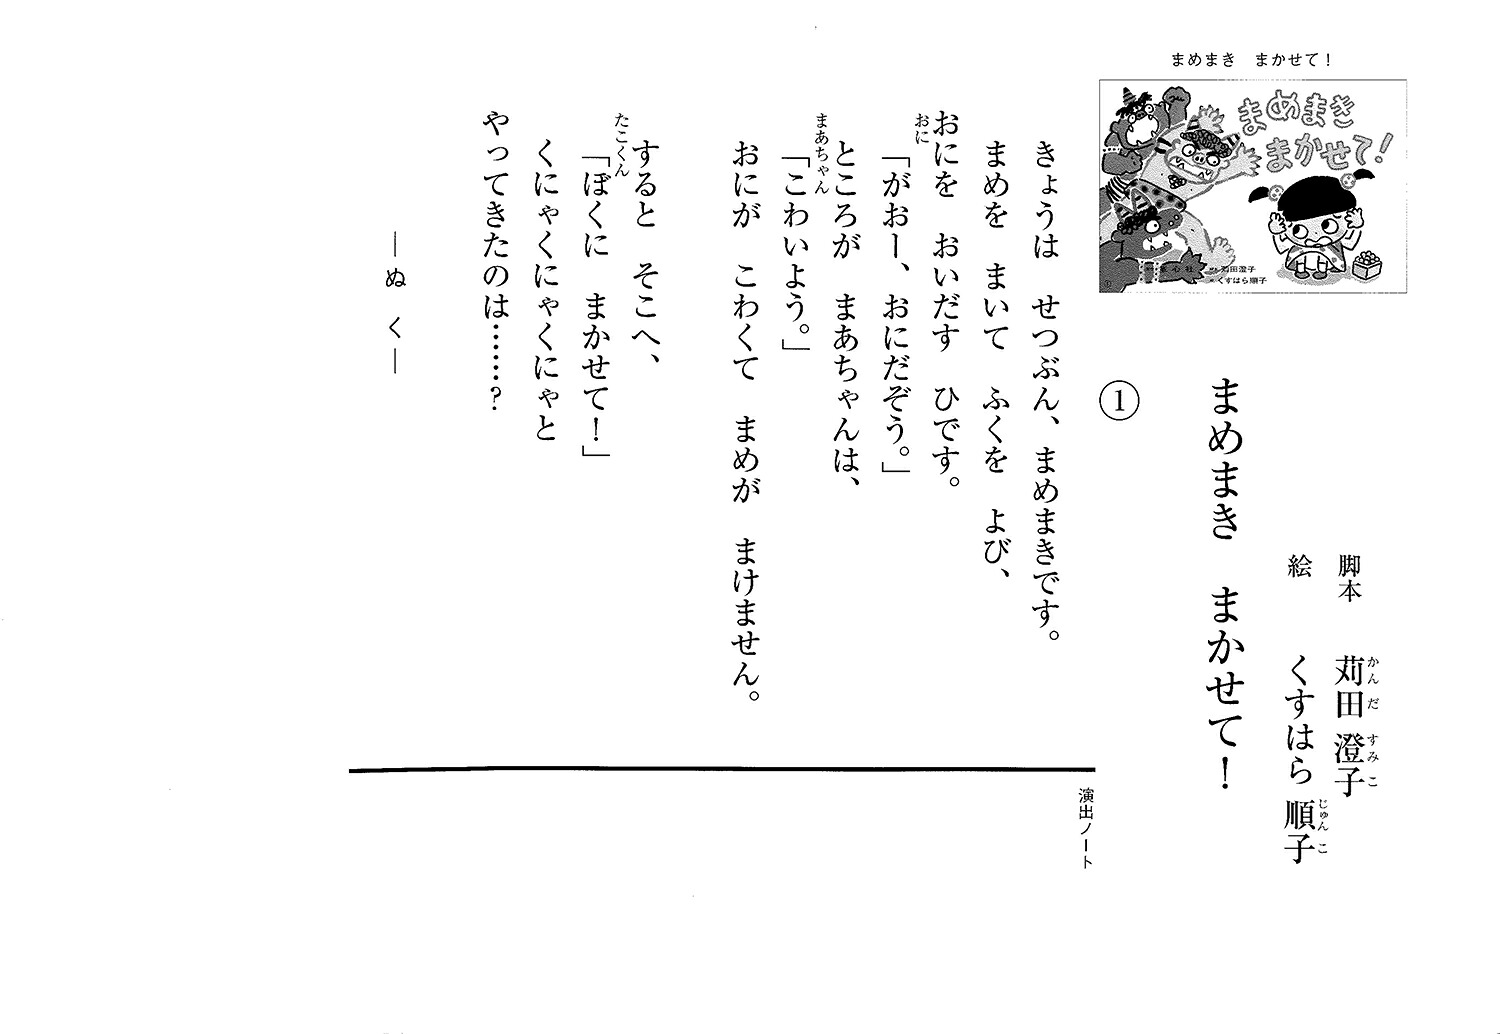 まめまき　まかせて！
まめまき
まかせて！
苅田澄子
くすはら順子
脚本　苅田　澄子
かんだ　すみこ
絵　くすはら　順子
じゅんこ
まめまき　まかせて！
①
きょうは　せつぶん、まめまきです。
まめを　まいて　ふくを　よび、
おにを　おいだす　ひです。
おに
「がおー、おにだぞう。」
ところが　まあちゃんは、
まあちゃん
「こわいよう。」
おにが　こわくて　まめが　まけません。
すると　そこへ、
たこくん
「ぼくに　まかせて！」
くにゃくにゃくにゃと
やってきたのは……？
―ぬ　く―
演出ノート